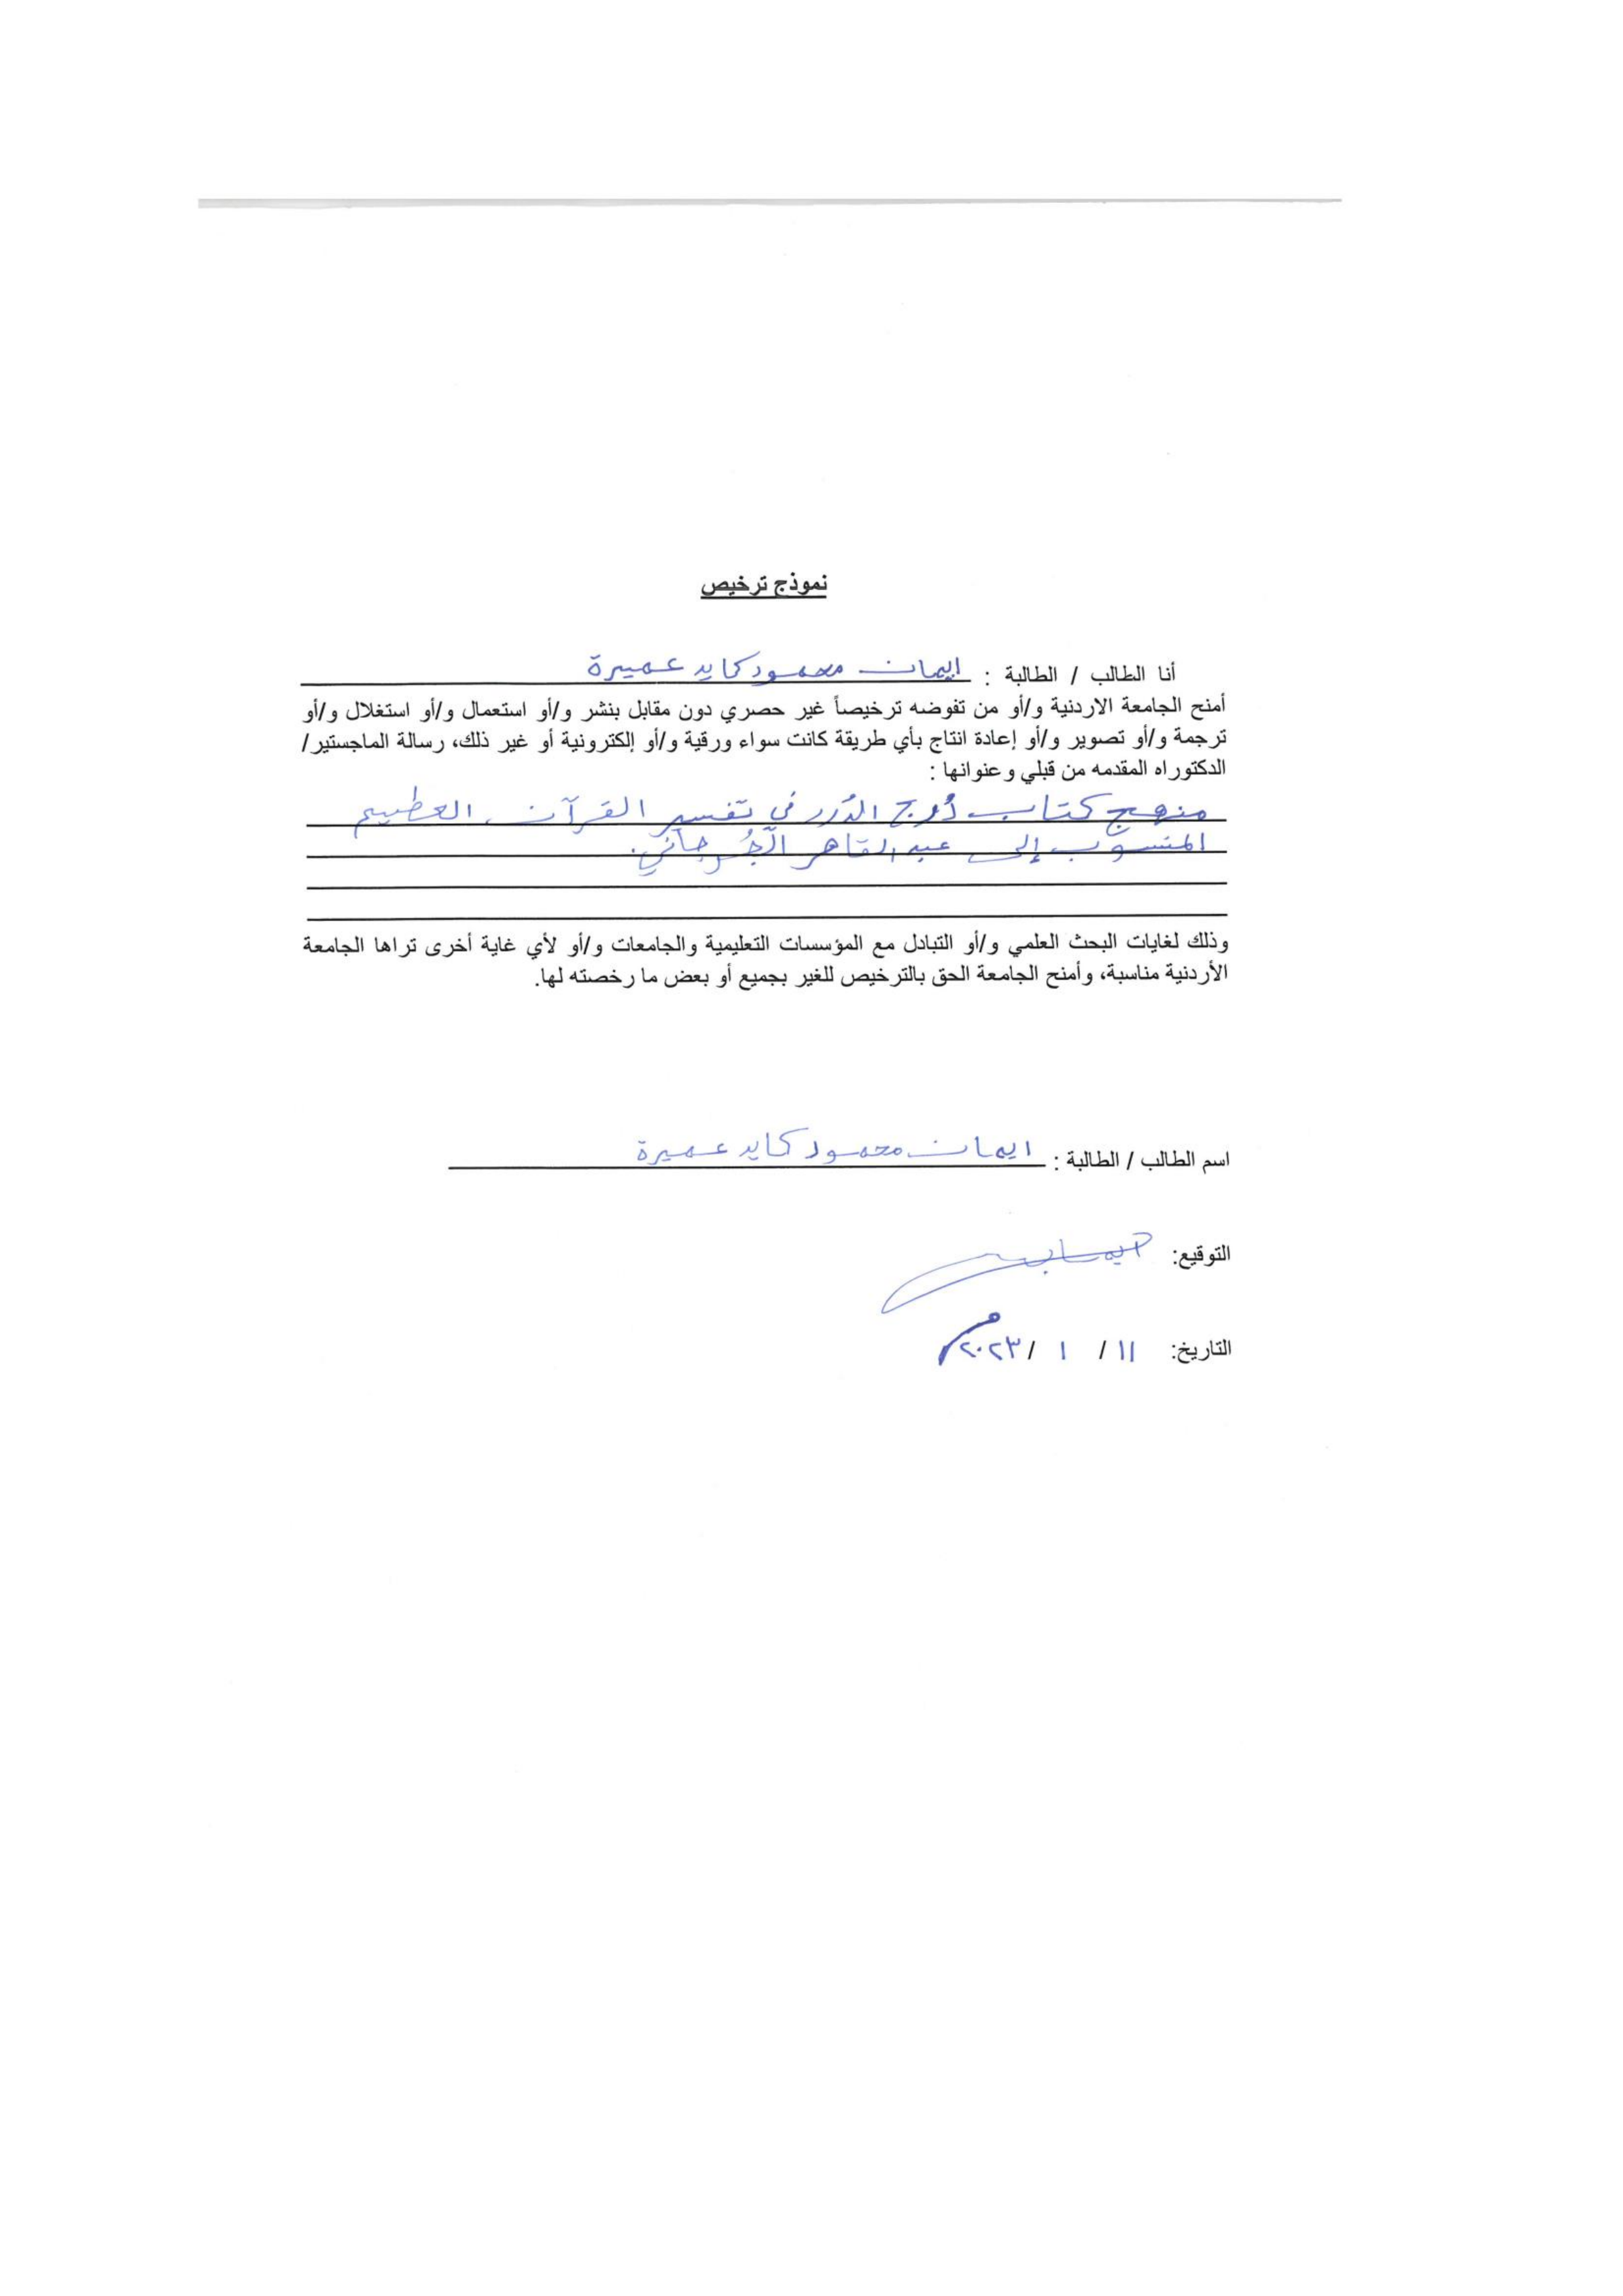 نموذج ترخيص
أنا الطالب / الطالبة : ايمان محمود كايد عميرة
أمنح الجامعة الاردنية و/أو من تفوضه ترخيصاً غير حصري دون مقابل بنشر و/أو استعمال و/أو استغلال و/أو
ترجمة و/أو تصوير و/أو إعادة انتاج بأي طريقة كانت سواء ورقية و/أو إلكترونية أو غير ذلك، رسالة الماجستير/
الدكتوراه المقدمه من قبلي وعنوانها :
منهج كتاب دُرج الدُرر في تفسير القرآن العظيم
المنسوب إلى عبد القاهر الجُرجاني.
وذلك لغايات البحث العلمي و/أو التبادل مع المؤسسات التعليمية والجامعات و/أو لأي غاية أخرى تراها الجامعة
الأردنية مناسبة، وأمنح الجامعة الحق بالترخيص للغير بجميع أو بعض ما رخصته لها.
اسم الطالب / الطالبة : ايمان محمود كايد عميرة
التوقيع: ايمان
التاريخ: ١١ / ١ / ٢٠٢٣م